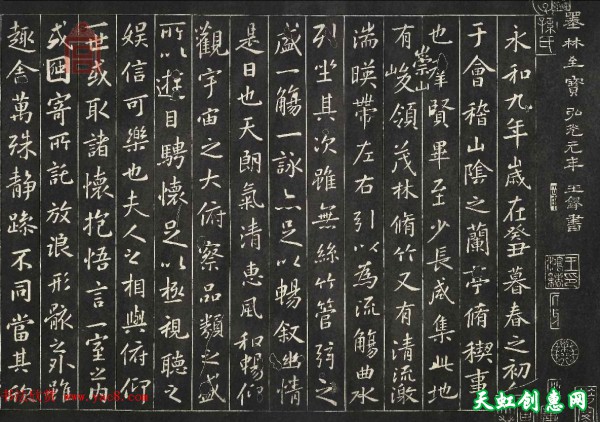 墨林至寶 弘光元年 王鐸書
永和九年歲在癸丑暮春之初會
于會稽山陰之蘭亭脩禊事
也羣賢畢至少長咸集此地
有崇山峻領茂林脩竹又有清流激
湍暎帶左右引以為流觴曲水
列坐其次雖無絲竹管弦之
盛一觴一詠亦足以暢叙幽情
是日也天朗氣清惠風和暢仰
觀宇宙之大俯察品類之盛
所以遊目騁懷足以極視聽之
娛信可樂也夫人之相與俯仰
一世或取諸懷抱悟言一室之內
或因寄所託放浪形骸之外雖
趣舍萬殊靜躁不同當其欣
天虹创意网